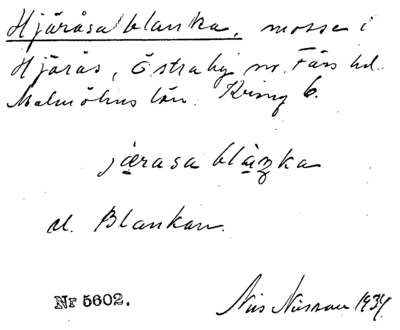 Hjäråsa blanka, mosse i
Hjärås, Östraby sn. Färs hd.
Malmöhus län. Kring 6.
järasa blaŋka
el. Blankan.
Nr 5602.
Nils Nilsson 1934.